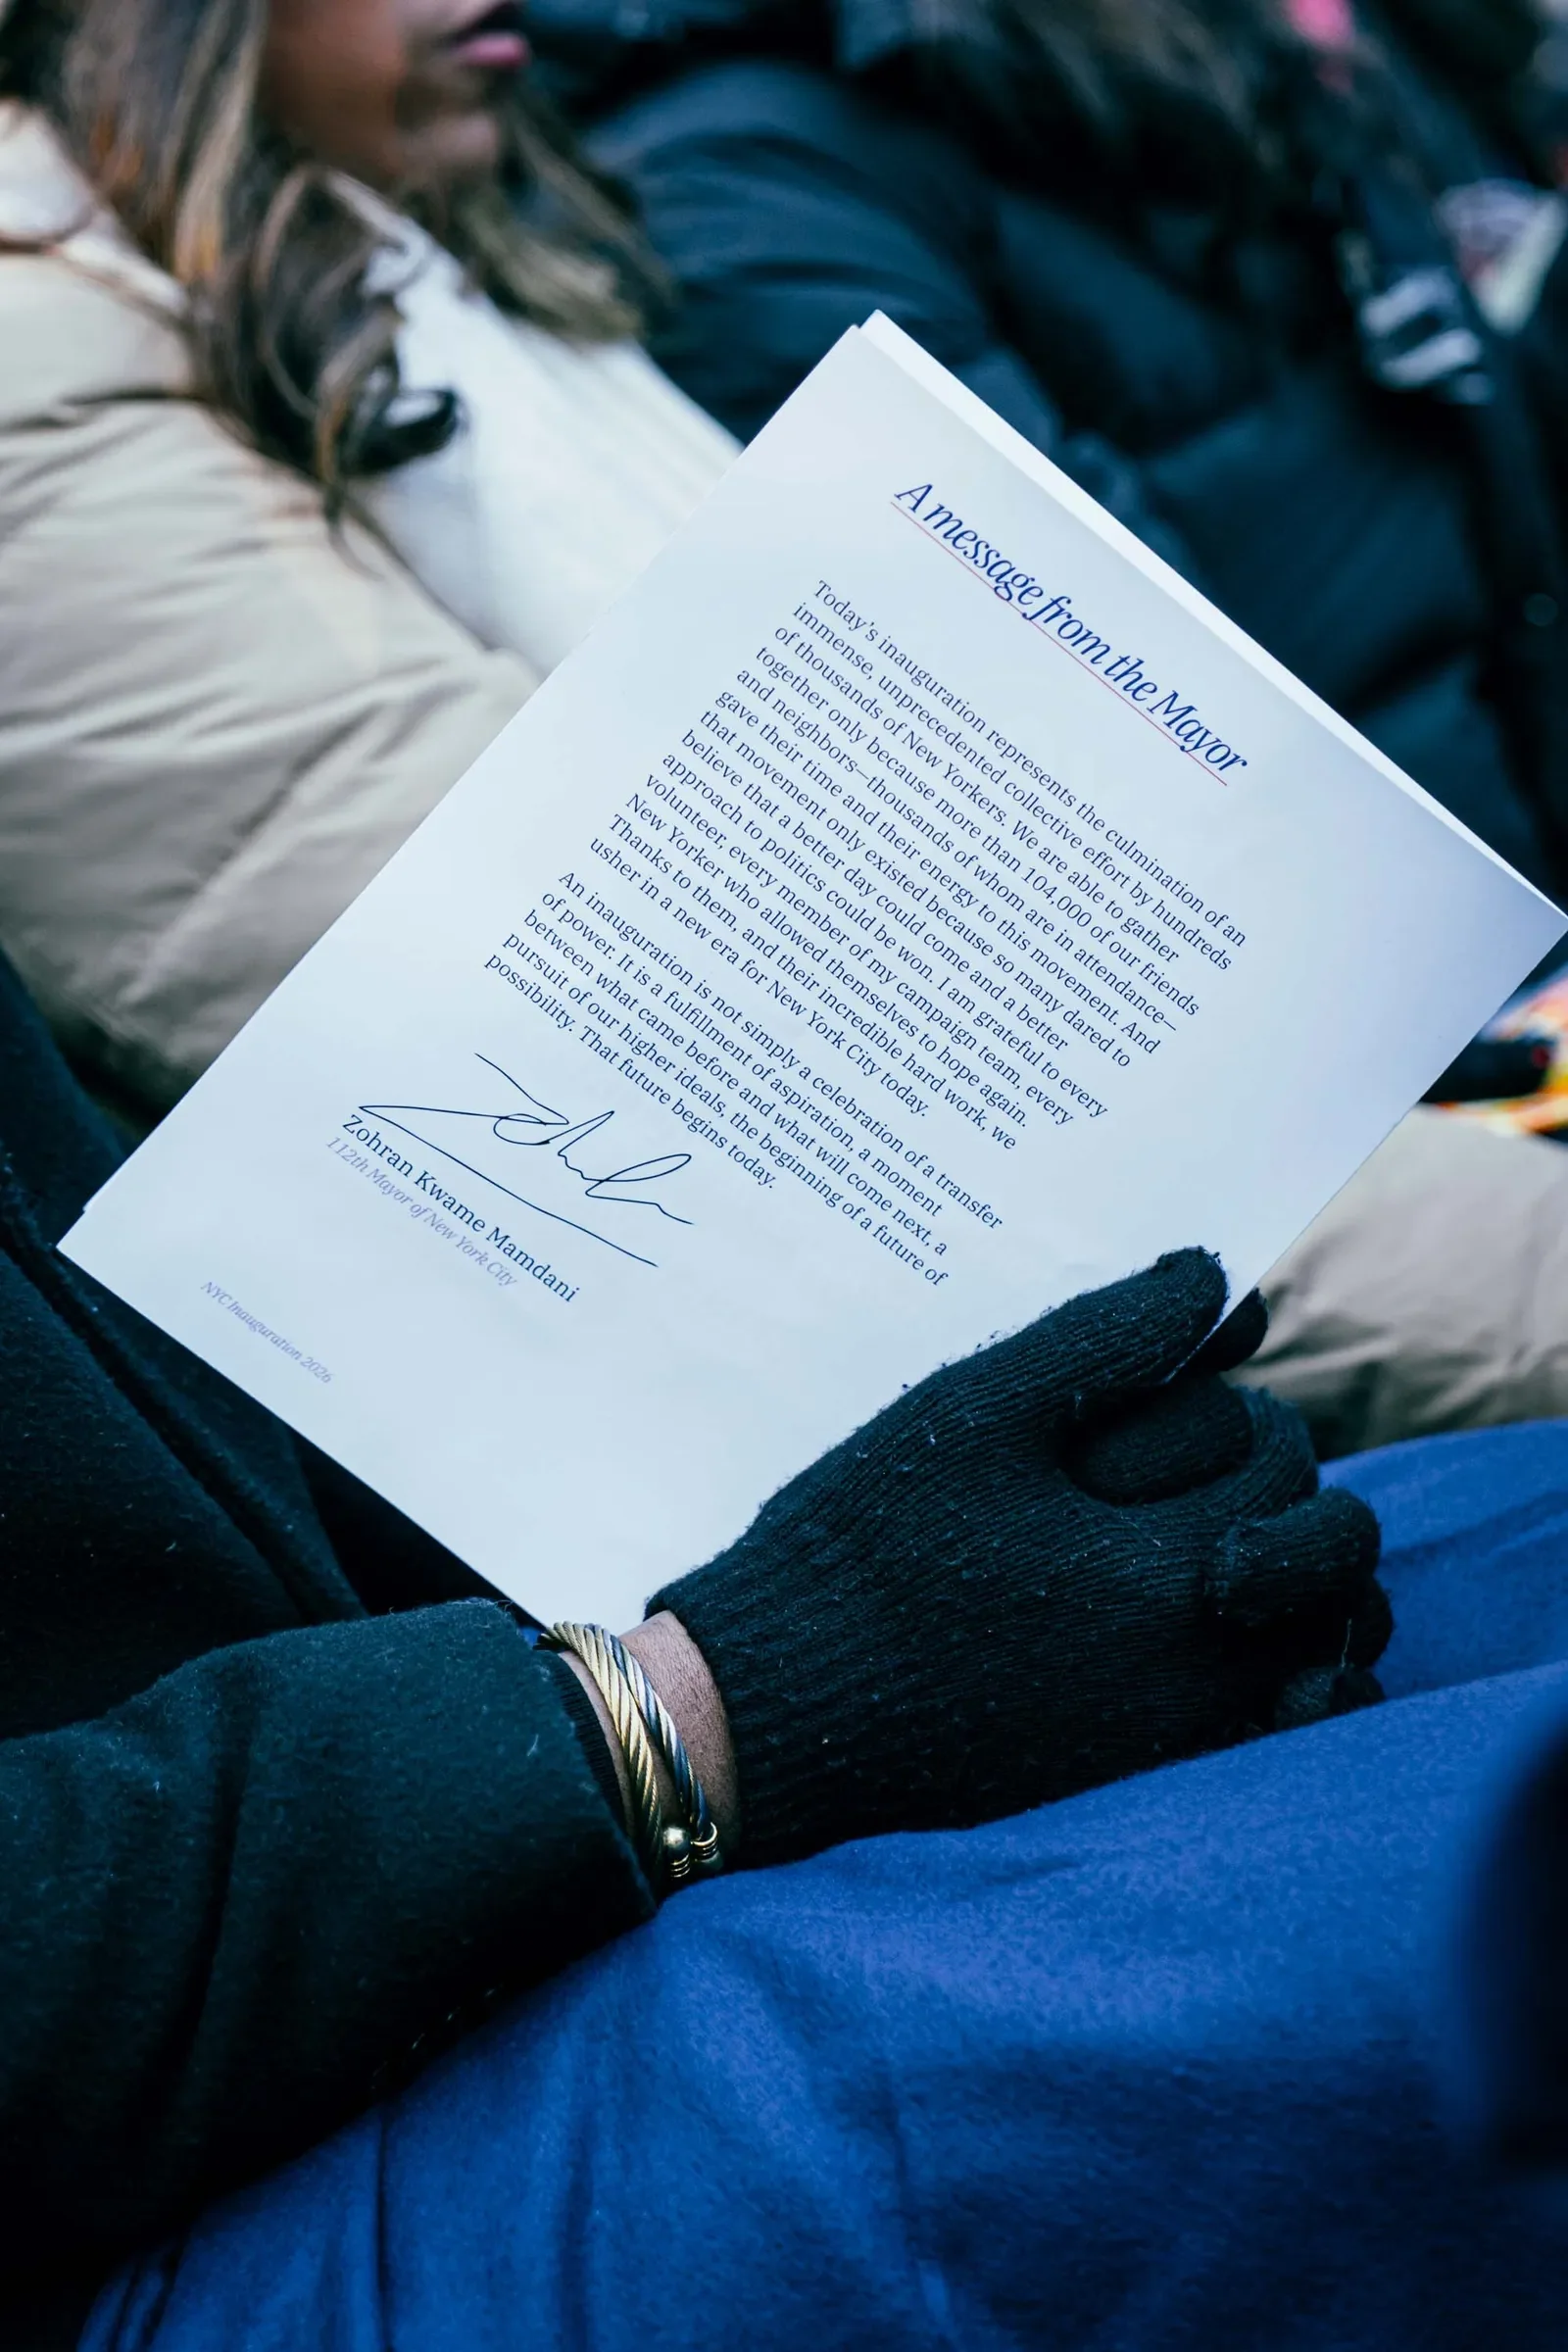 A message from the Mayor
Today's inauguration represents the culmination of an
immense, unprecedented collective effort by hundreds
of thousands of New Yorkers. We are able to gather
together only because more than 104,000 of our friends
and neighbors—thousands of whom are in attendance—
gave their time and their energy to this movement. And
that movement only existed because so many dared to
believe that a better day could come and a better
approach to politics could be won. I am grateful to every
volunteer, every member of my campaign team, every
New Yorker who allowed themselves to hope again.
Thanks to them, and their incredible hard work, we
usher in a new era for New York City today.
An inauguration is not simply a celebration of a transfer
of power. It is a fulfillment of aspiration, a moment
between what came before and what will come next, a
pursuit of our higher ideals, the beginning of a future of
possibility. That future begins today.
Zohran Kwame Mamdani
112th Mayor of New York City
NYC Inauguration 2026